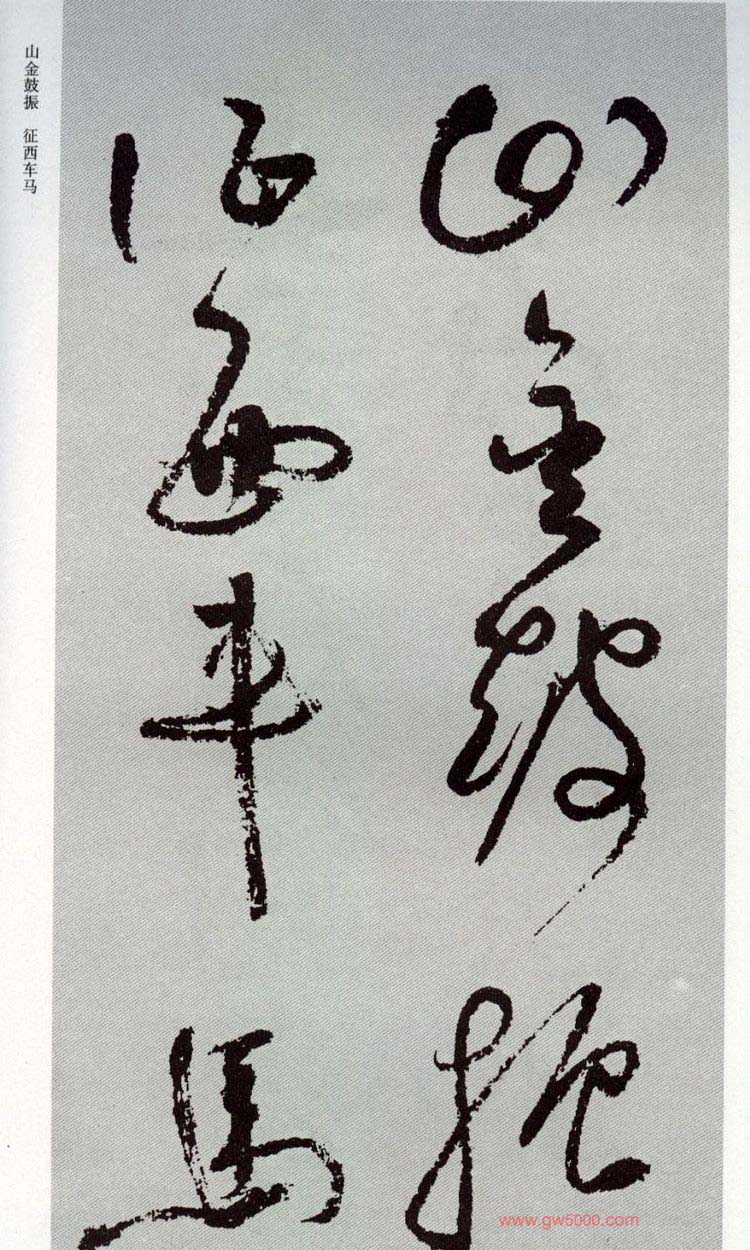 山金鼓振
征西车马
山金鼓振 征西车马
www.gw5000.com